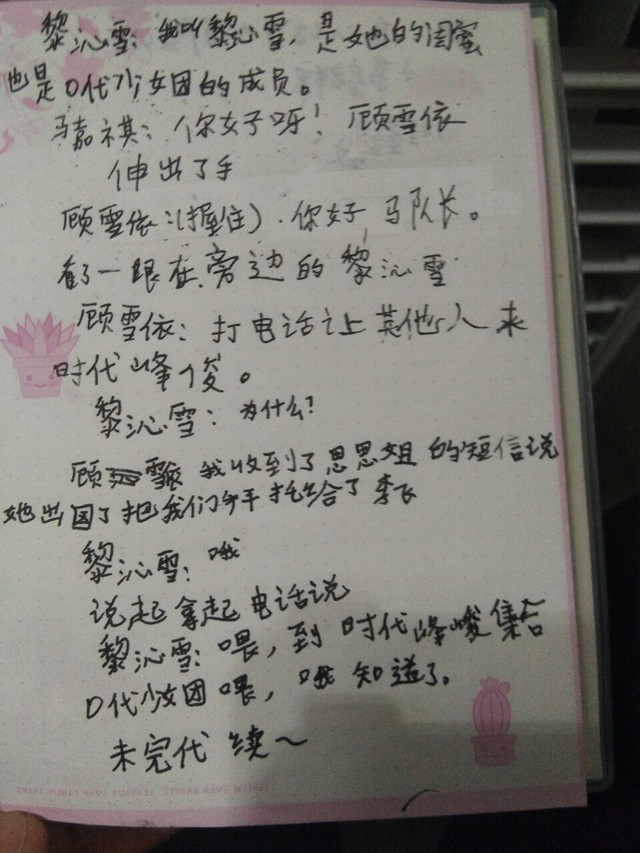 黎沁雪：我叫黎沁雪，是她的闺蜜
也是D代少女团的成员。
马嘉祺：你好呀！顾雪依
伸出了手
顾雪依：(握住)．你好 马队长。
看了一眼在旁边的黎沁雪
顾雪依：打电话让其他人来
时代峰俊。
黎沁雪：为什么？
顾雪依 我收到了思思姐的短信说
她出国了把我们托给了李飞
黎沁雪：哦
说起拿起电话说
黎沁雪：喂，到时代峰峻集合
D代少女团 喂，哦 知道了。
未完代续～